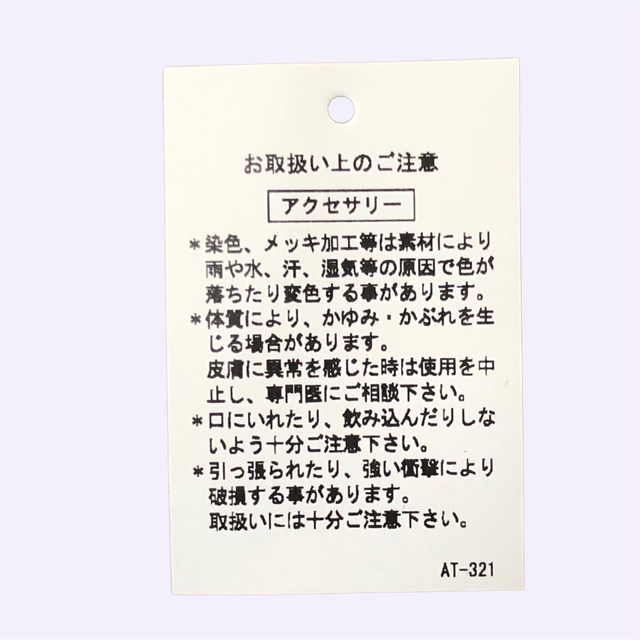 お取扱い上のご注意
アクセサリー
*染色、メッキ加工等は素材により
雨や水、汗、湿気等の原因で色が
落ちたり変色する事があります。
*体質により、かゆみ・かぶれを生
じる場合があります。
皮膚に異常を感じた時は使用を中
止し、専門医にご相談下さい。
*口にいれたり、飲み込んだりしな
いよう十分ご注意下さい。
*引っ張られたり、強い衝撃により
破損する事があります。
取扱いには十分ご注意下さい。
AT-321